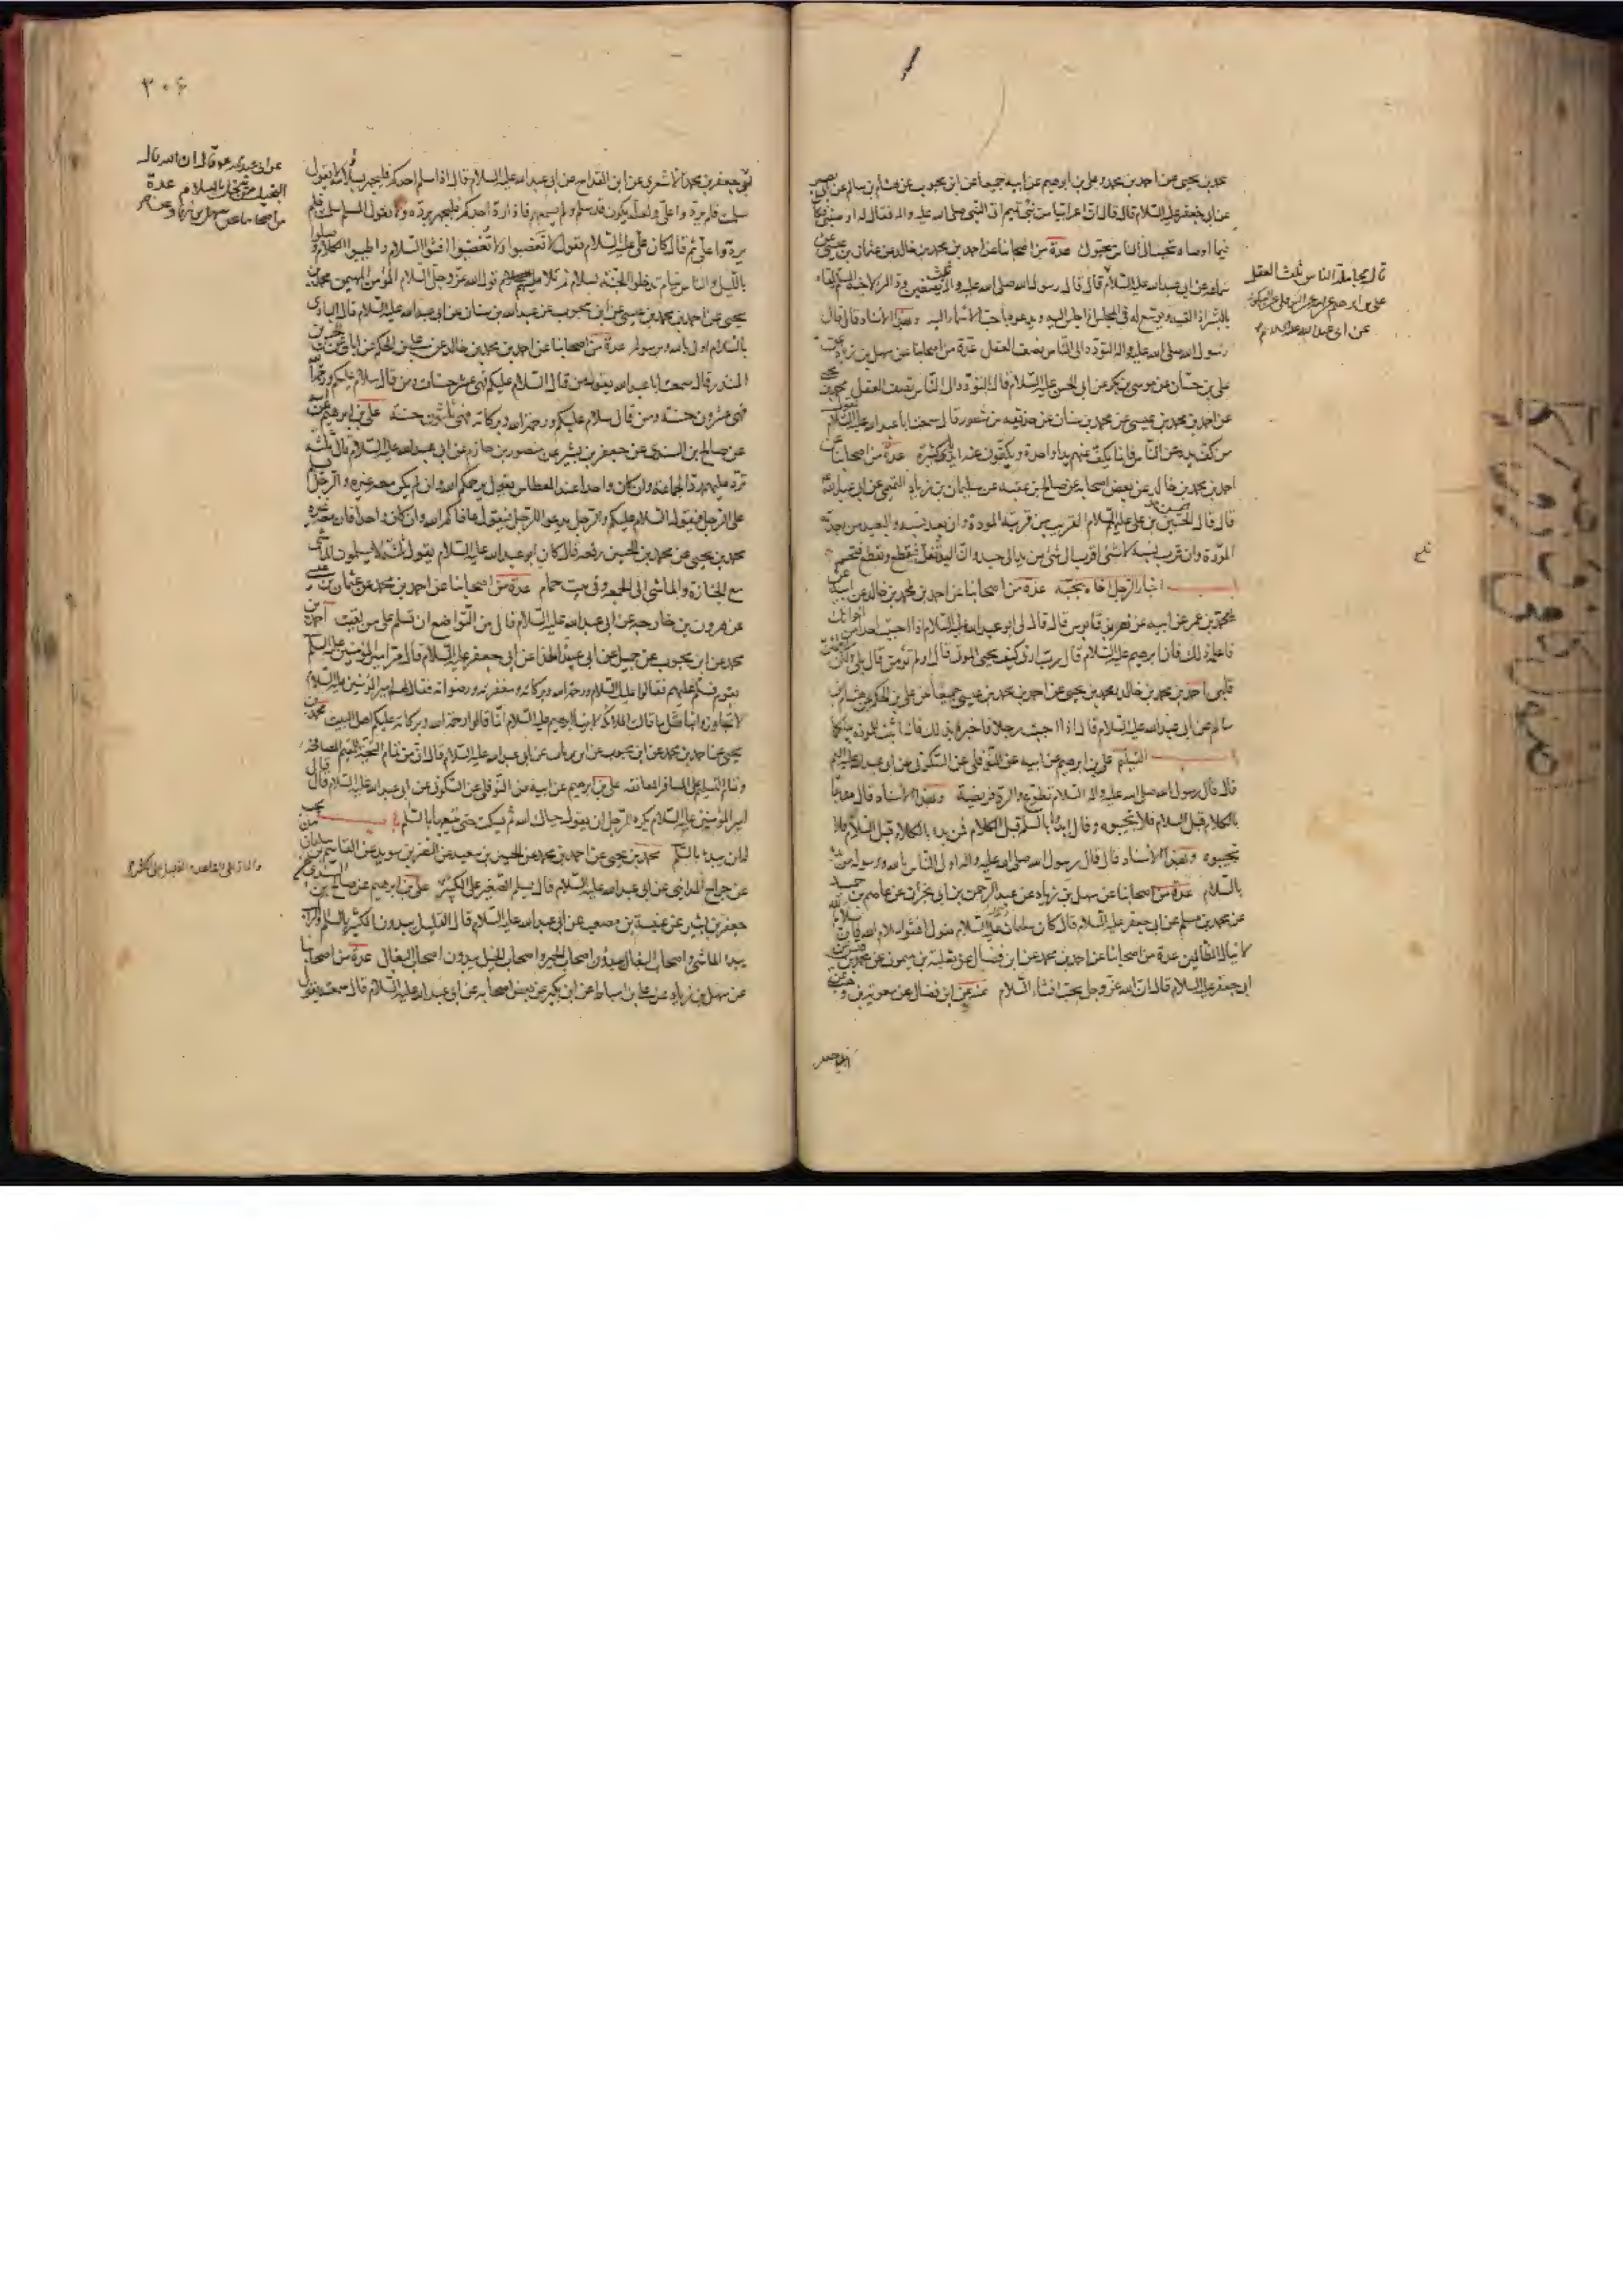 محمد بن يحيى عن احمد بن محمد وعلى بن ابرهيم عن ابيه جميعا عن ابن محبوب عن هشام بن سالم عن ابى بصير
عن ابى جعفر عليه السلام قال قال ان اعرابيا من بنى تميم اتى النبى صلى الله عليه واله فقال له اوصنى فكان
فيما اوصاه تحبب الى الناس يحبوك عدة من اصحابنا عن احمد بن محمد بن خالد عن عثمان بن عيسى عن
سماعه عن ابى عبد الله عليه السلام قال قال رسول الله صلى الله عليه واله ثلث يصفين ود المرء لاخيه المسلم يلقاه
بالبشر اذا لقيه ويوسع له فى المجلس اذا جلس اليه ويدعوه باحب الاسماء اليه وبهذا الاسناد قال قال
رسول الله صلى الله عليه واله التودد الى الناس نصف العقل عدة من اصحابنا عن سهل بن زياد عن
على بن حسان عن موسى بن بكر عن ابى الحسن عليه السلام قال التودد الى الناس نصف العقل محمد بن يحيى
عن احمد بن محمد بن عيسى عن محمد بن سنان عن حذيفه بن منصور قال سمعت ابا عبد الله عليه السلام يقول
من كف يده عن الناس فانما يكف عنهم يدا واحدة ويكفون عنه ايدى كثيرة عدة من اصحابنا عن
احمد بن محمد بن خالد عن بعض اصحابه عن صالح بن عقبه عن سليمان بن زياد التميمى عن ابى عبد الله
قال قال الحسن بن على عليه السلام القريب من قربته المودة وان بعد نسبه والبعيد من بعدته
المودة وان قرب نسبه لا شىء اقرب الى شىء من يد الى جسد وان اليد تغل فتقطع وتقطع فتحسم
باب اخبار الرجل اخاه بحبه عدة من اصحابنا عن احمد بن محمد بن خالد عن ابيه عن
محمد بن عمر عن ابيه عن نصر بن قابوس قال قال لى ابو عبد الله عليه السلام اذا احببت احدا من اخوانك
فاعلمه ذلك فان ابرهيم عليه السلام قال رب ارنى كيف تحيى الموتى قال اولم تؤمن قال بلى ولكن ليطمئن
قلبى احمد بن محمد بن خالد ومحمد بن يحيى عن احمد بن محمد بن عيسى جميعا عن على بن الحكم عن هشام بن
سالم عن ابى عبد الله عليه السلام قال اذا احببت رجلا فاخبره بذلك فانه اثبت للمودة بينكما
باب التسليم على بن ابرهيم عن ابيه عن النوفلى عن السكونى عن ابى عبد الله عليه السلام
قال قال رسول الله صلى الله عليه واله السلام تطوع والرد فريضة وبهذا الاسناد قال من بدا
بالكلام قبل السلام فلا تجيبوه وقال ابدؤا بالسلام قبل الكلام فمن بدا بالكلام قبل السلام فلا
تجيبوه وبهذا الاسناد قال قال رسول الله صلى الله عليه واله اولى الناس بالله ورسوله من بدا
بالسلام عدة من اصحابنا عن سهل بن زياد عن عبد الرحمن بن ابى نجران عن عاصم بن حميد
عن محمد بن مسلم عن ابى جعفر عليه السلام قال كان سلمان عليه السلام يقول افشوا سلام الله فان سلام الله
لا ينال الظالمين عدة من اصحابنا عن احمد بن محمد عن ابن فضال عن ثعلبة بن ميمون عن محمد بن قيس عن
ابى جعفر عليه السلام قال ان الله عز وجل يحب افشاء السلام عنه عن ابن فضال عن معوية بن وهب عن
قال مجاملة الناس ثلث العقل
على بن ابرهيم عن ابيه عن النوفلى عن السكونى
عن ابى عبد الله عليه السلم
٣٠٦
جعفر بن محمد الاشعرى عن ابن القداح عن ابى عبد الله عليه السلام قال اذا سلم احدكم فليجهر بسلامه لا يقول
سلمت فلم يردوا على ولعله يكون قد سلم ولم يسمعهم فاذا رد احدكم فليجهر برده ولا يقول المسلم سلمت فلم
يردوا على ثم قال كان على عليه السلام يقول لا تغضبوا ولا تغضبوا افشوا السلام واطيبوا الكلام وصلوا
بالليل والناس نيام تدخلوا الجنة بسلام ثم تلا عليهم قول الله عز وجل السلام المؤمن المهيمن محمد بن
يحيى عن احمد بن محمد بن عيسى عن ابن محبوب عن عبد الله بن سنان عن ابى عبد الله عليه السلام قال البادى
بالسلام اولى بالله وبرسوله عدة من اصحابنا عن احمد بن محمد بن خالد عن على بن الحكم عن ابان عن الحسن بن
المنذر قال سمعت ابا عبد الله يقول من قال السلام عليكم فهى عشر حسنات ومن قال سلام عليكم ورحمة الله
فهى عشرون حسنة ومن قال سلام عليكم ورحمة الله وبركاته فهى ثلثون حسنة على بن ابرهيم عن ابيه
عن صالح بن السندى عن جعفر بن بشير عن منصور بن حازم عن ابى عبد الله عليه السلام قال ثلثه
ترد عليهم رد الجماعة وان كان واحدا عند العطاس يقول يرحمكم الله وان لم يكن معه غيره والرجل يسلم
على الرجل فيقول السلام عليكم والرجل يدعو للرجل فيقول عافاكم الله وان كان واحدا فان معه غيره
محمد بن يحيى عن محمد بن الحسين رفعه قال كان ابو عبد الله عليه السلام يقول ثلثة لا يسلمون الماشى
مع الجنازة والماشى الى الجمعه وفى بيت حمام عدة من اصحابنا عن احمد بن محمد عن عثمان بن عيسى
عن هرون بن خارجه عن ابى عبد الله عليه السلام قال من التواضع ان تسلم على من لقيت احمد بن
محمد عن ابن محبوب عن جميل عن ابى عبيدة الحذا عن ابى جعفر عليه السلام قال مر امير المؤمنين عليه السلم
بقوم فسلم عليهم فقالوا عليك السلام ورحمة الله وبركاته ومغفرته ورضوانه فقال لهم امير المؤمنين عليه السلام
لا تجاوزوا بنا مثل ما قالت الملائكة لابينا ابرهيم عليه السلام انما قالوا رحمة الله وبركاته عليكم اهل البيت محمد بن
يحيى عن احمد بن محمد عن ابن محبوب عن ابن رياب عن ابى عبد الله عليه السلام قال ان من تمام التحية للمقيم المصافحه
وتمام التسليم على المسافر المعانقه على بن ابرهيم عن ابيه عن النوفلى عن السكونى عن ابى عبد الله عليه السلام قال قال
امير المؤمنين عليه السلام يكره للرجل ان يقول حياك الله ثم يسكت حتى يتبعها بالسلم باب من يجب
له ان يبدا بالسلم محمد بن يحيى عن احمد بن محمد عن الحسين بن سعيد عن النضر بن سويد عن القاسم بن سليمان
عن جراح المداينى عن ابى عبد الله عليه السلام قال يسلم الصغير على الكبير على بن ابرهيم عن صالح بن السندى عن
جعفر بن بشير عن عنبسة بن مصعب عن ابى عبد الله عليه السلام قال القليل يبدون الكثير بالسلم والراكب
يبدا الماشى واصحاب البغال يبدون اصحاب الحمير واصحاب الخيل يبدون اصحاب البغال عدة من اصحابنا
عن سهل بن زياد عن على بن اسباط عن ابن بكير عن بعض اصحابه عن ابى عبد الله عليه السلام قال سمعته يقول
عن ابى عبد الله ع قال ان الله قال
البخيل من بخل بالسلام عدة
من اصحابنا عن سهل بن زياد عن
والمار على القاعد والقليل على الكثير